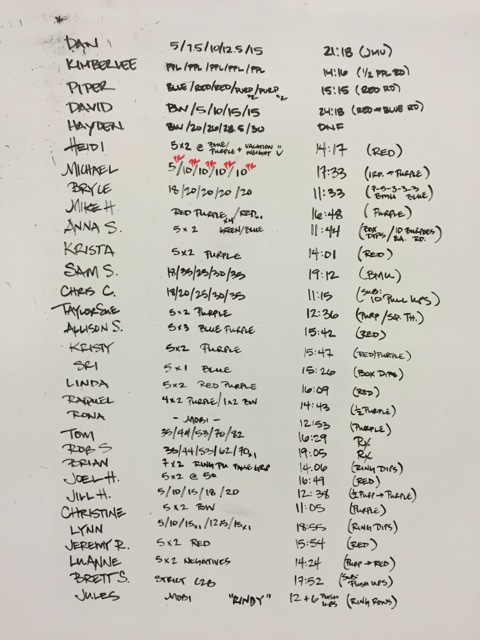 DAN 5/7.5/10/12.5/15 21:18 (JMU)
KIMBERLEE PPL/PPL/PPL/PPL/PPL 14:16 (1/2 PPL RD)
PIPER BLUE/RED/RED/PURP/PURP 15:15 (RED RD)
DAVID BW/5/10/15/15 24:18 (RED → BLUE RD)
HAYDEN BW/20/20/28.5/30 DNF
HEIDI 5x2 @ BLUE/PURPLE + VACATION WEIGHT 14:17 (RED)
MICHAEL 5/10/10/10/10 17:33 (1 RD. → PURPLE)
BRYCE 18/20/20/20/20 11:33 (7-5-3-3-3 BMU BLUE)
MIKE H RED PURPLE x4/RED 16:48 (PURPLE)
ANNA S. 5x2 GREEN/BLUE 11:44 (BOX DIPS/10 BURPEES EA. RD.)
KRISTA 5x2 PURPLE 14:01 (RED)
SAM S. 18/35/25/30/35 19:12 (BMU)
CHRIS C. 18/20/25/30/35 11:15 (SUB: 10 PULL UPS)
TAYLORSUE 5x2 PURPLE 12:36 (PURP/SQ. TH.)
ALLISON S. 5x3 BLUE PURPLE 15:42 (RED)
KRISTY 5x2 PURPLE 15:47 (RED/PURPLE)
SRI 5x1 BLUE 15:26 (BOX DIPS)
LINDA 5x2 RED PURPLE 16:09 (RED)
RAQUEL 4x2 PURPLE/1x2 BW 14:43 (1/2 PURPLE)
RONA - MOBI - 12:53 (PURPLE)
TOM 35/44/53/70/82 16:29 Rx
ROB S 35/44/53/62/70x1 19:05 Rx
BRIAN 7x2 RING PU FALSE GRP 14:06 (RING DIPS)
JOEL H. 5x2 @ 5# 16:49 (RED)
JILL H. 5/10/15/18/20 12:38 (1/2 PURP → PURPLE)
CHRISTINE 5x2 BW 11:05 (PURPLE)
LYNN 5/10/15x1/12.5/15x1 18:55 (RING DIPS)
JEREMY R. 5x2 RED 15:54 (RED)
LUANNE 5x2 NEGATIVES 14:24 (PURP → RED)
BRETT S. STRICT C2B 17:52 (SUB: PUSH UPS)
JULES MOBI "RINDY" 12+6 PUSH UPS (RING ROWS)